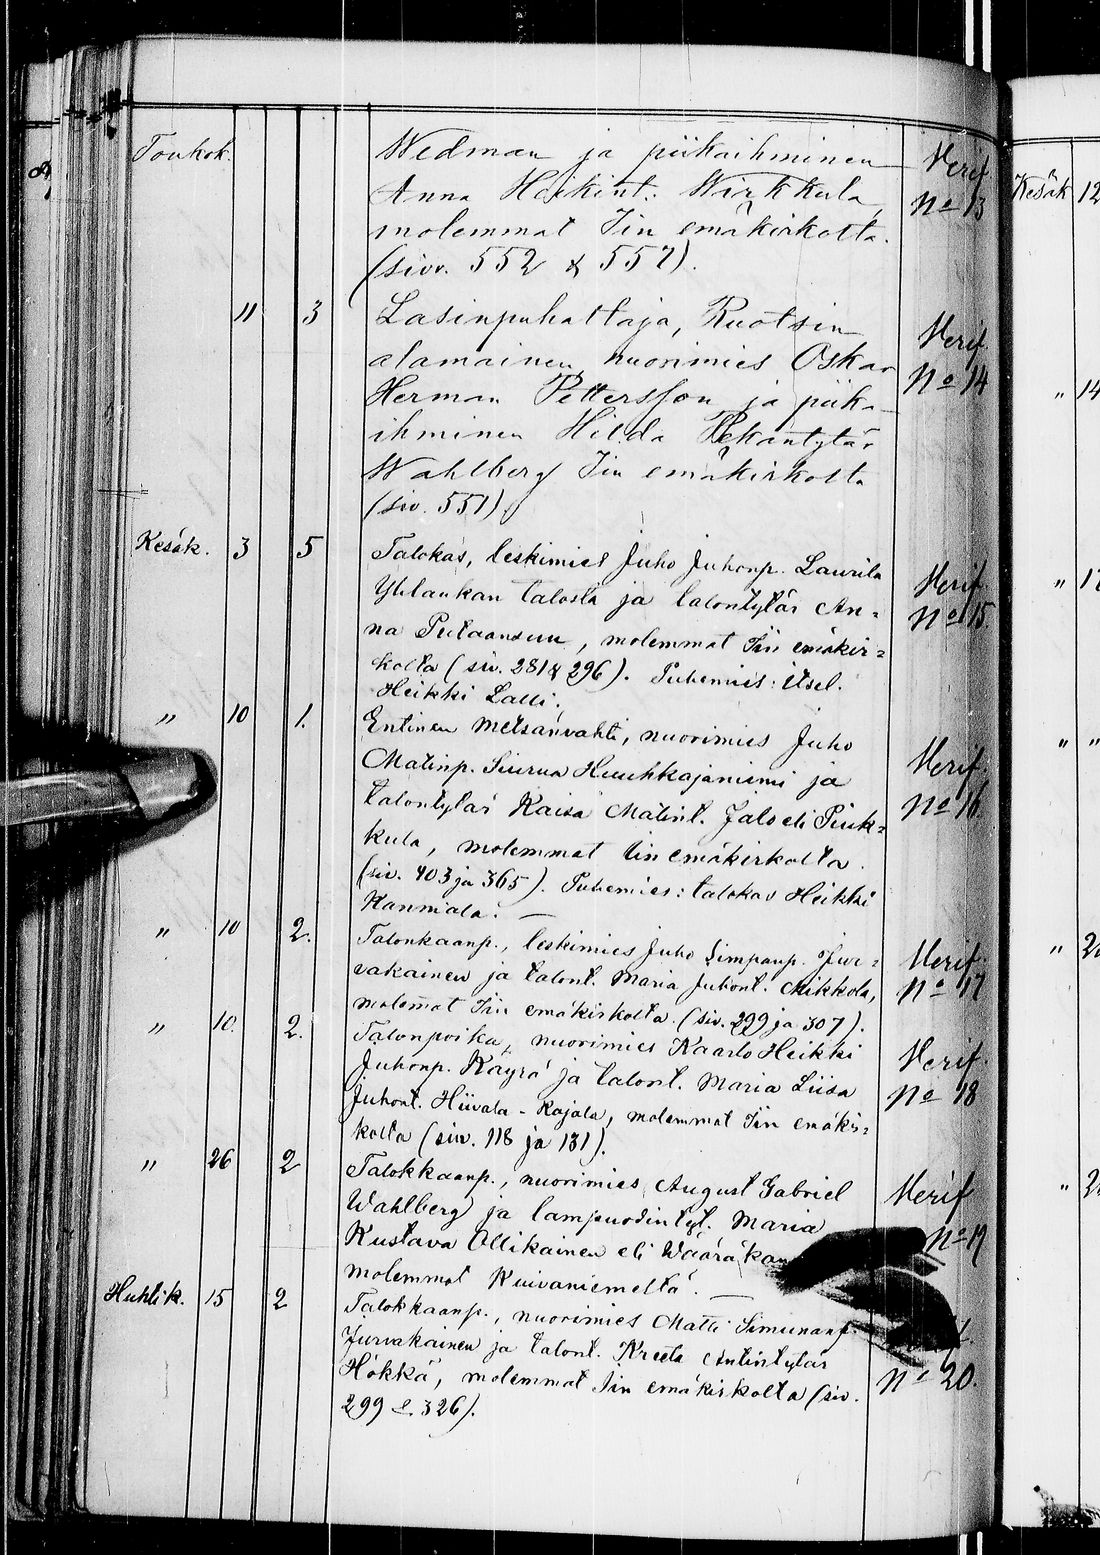 Toukok. Wedman ja piikaihminen Verif.
Anna Heikint. Wirkkula, No 13
molemmat Iin emäkirkolta.
(sivv. 552 & 557).
11 3 Lasinpuhaltaja, Ruotsin
alamainen, nuorimies Oskar Verif.
Herman Pettersson ja piika- No 14
ihminen Hilda Pekantytär
Wahlberg Iin emäkirkolta
(siv. 551).
Kesäk. 3 5 Talokas, leskimies Juho Juhonp. Laurila
Ylilaukan talosta ja talontytär An= Verif.
na Putaansuu, molemmat Iin emäkir= No 15
kolta (siv. 281 & 296). Puhemies: itsel.
Heikki Lalli.
" 10 1. Entinen metsänvahti, nuorimies Juho
Matinp. Siurua Huuhkajaniemi ja Verif.
talontytär Kaisa Matint. Jalo eli Pirk= No 16.
kula, molemmat Iin emäkirkolta.
(siv. 403 ja 365). Puhemies: talokas Heikki
Kanniala. —
" 10 2. Talonkaanp., leskimies Juho Simpanp. Jur= Verif.
vakainen ja talont. Maria Juhont. Mikkola, No 17
molemat Iin emäkirkolta. (siv. 299 ja 307).
" 10. 2. Talonpoika, nuorimies Kaarlo Heikki Verif.
Juhonp. Käyrä ja talont. Maria Liisa No 18
Juhont. Hiivala - Kajala, molemmat Iin emäkir=
kolta (siv. 118 ja 131).
" 26 2 Talokkaanp., nuorimies August Gabriel Verif
Wahlberg ja lampuodintyt. Maria No 19
Kustava Ollikainen eli
molemmat Kuivaniemeltä. —
Huhtik. 15 2 Talokkaanp., nuorimies Matti Simunanp.
Jurvakainen ja talont. Kreeta Antintytär
Hökkä, molemmat Iin emäkirkolta (siv. No 20.
299 & 326).
Kesäk 12
" 14
"
" "
"
"